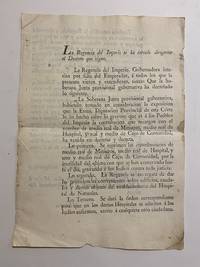 La Regencia del Imperio se ha servido dirigirme
el Decreto que sigue.
La Regencia del Imperio, Gobernadora interina
por falta del Emperador, á todos los que la
presente vieren y entendieren, sabed: Que la
Soberana Junta provisional gubernativa ha decretado
lo siguiente.
„La Soberana Junta provisional gubernativa,
habiendo tomado en consideracion la exposicion
que la Exma. Diputacion Provincial de esta Corte
le ha hecho sobre lo gravoso que es á los Pueblos
del Imperio la contribucion que recargan con el
nombre de medio real de Ministros, medio real de
Hospital, y real y medio de Cajas de Comunidad,
ha venido en decretar y decreta.
Lo primero. Se suprimen las contribuciones de
medio real de Ministros, medio real de Hospital, y
uno y medio real de Caja de Comunidad, por la
del objeto con que se han conservado hasta
el dia,
Lo segundo. La Regencia
del establecimiento del Hospital
de Naturales.
Lo Tercero. Se dará la órden correspondiente
para que en los demas Hospitales se admitan á los
Indios enfermos, como á cualquiera otro ciudadano.